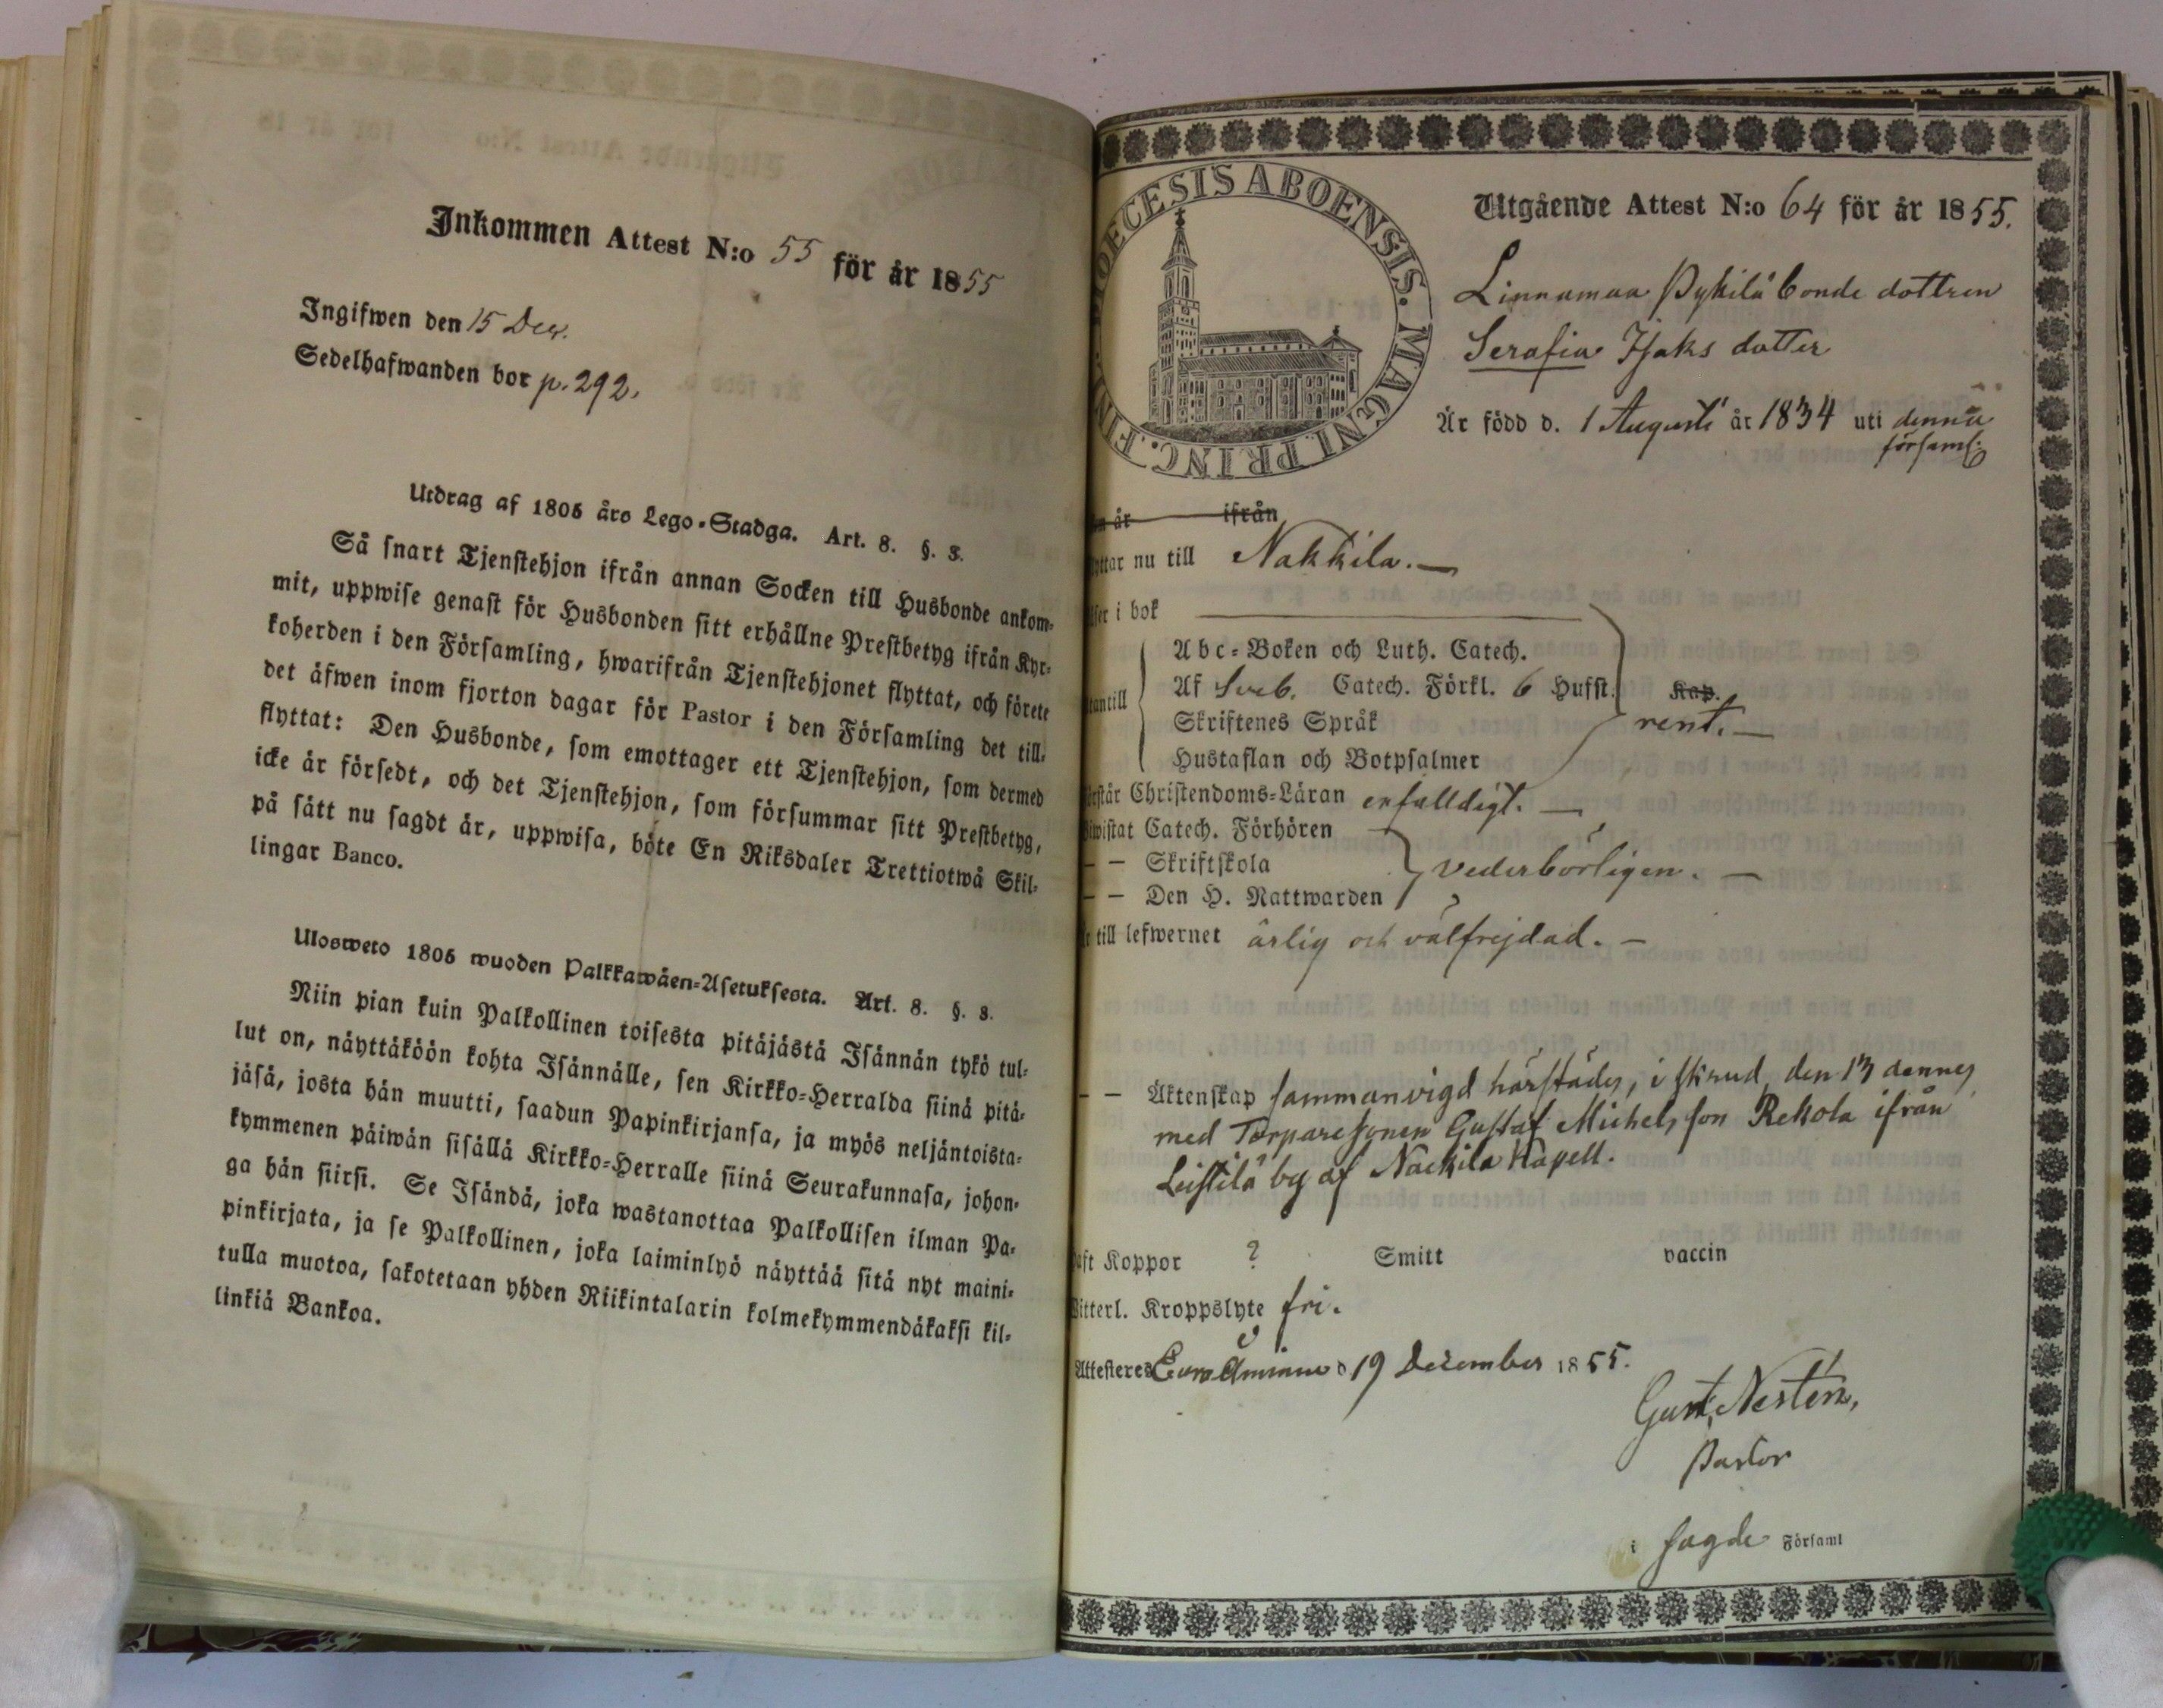 Inkommen Attest N:o 55 för år 1855
Ingifwen den 15 Dec.
Sedelhafwanden bor p. 292.
Utdrag af 1805 års Lego-Stadga. Art. 8. §. 8.
Så snart Tjenstehjon ifrån annan Socken till Husbonde ankom-
mit, uppwise genast för Husbonden sitt erhållne Prestbetyg ifrån Kyr-
koherden i den Församling, hwarifrån Tjenstehjonet flyttat, och förete
det äfwen inom fjorton dagar för Pastor i den Församling det till-
flyttat: Den Husbonde, som emottager ett Tjenstehjon, som dermed
icke är försedt, och det Tjenstehjon, som försummar sitt Prestbetyg,
på sätt nu sagdt är, uppwisa, böte En Riksdaler Trettiotwå Skil-
lingar Banco.
Ulosweto 1805 wuoden Palkkawäen-Asetuksesta. Art. 8. §. 8.
Niin pian kuin Palkollinen toisesta pitäjästä Isännän tykö tul-
lut on, näyttäköön kohta Isännälle, sen Kirkko-Herralda siinä pitä-
jäsä, josta hän muutti, saadun Papinkirjansa, ja myös neljäntoista-
kymmenen päiwän sisällä Kirkko-Herralle siinä Seurakunnasa, johon-
ga hän siirsi. Se Isändä, joka wastanottaa Palkollisen ilman Pa-
pinkirjata, ja se Palkollinen, joka laiminlyö näyttää sitä nyt maini-
tulla muotoa, sakotetaan yhden Riikintalarin kolmekymmendäkaksi kil-
linkiä Bankoa.
DIOECESIS ABOENSIS. MAGNI. PRINC. FINL.
Utgående Attest N:o 64 för år 1855.
Linnamaa Pykilä bonde dottren
Serafia Isaks dotter
Är född d. 1 Augusti år 1834 uti denna
församl.
år ifrån
nu till Nakkila.
i bok
Abc-Boken och Luth. Catech.
Af Sveb. Catech. Förkl. 6 Hufst. Kap.
Skriftenes Språk rent.
Hustaflan och Botpsalmer
Christendoms-Läran enfalldigt.
Catech. Förhören
— — Skriftskola vederbörligen.
— — Den H. Nattwarden
till lefwernet ärlig och välfrejdad.
— — Äktenskap sammanvigd härstädes, i skrud, den 13 dennes
med Torparesonen Gustaf Michelsson Rekola ifrån
Leistilä by af Nackila Kapell.
Koppor ? Smitt vaccin
Kroppslyte fri.
Attesteres Eura Åminne d 19 December 1855.
Gust. Nestén,
Pastor
i sagde Församl